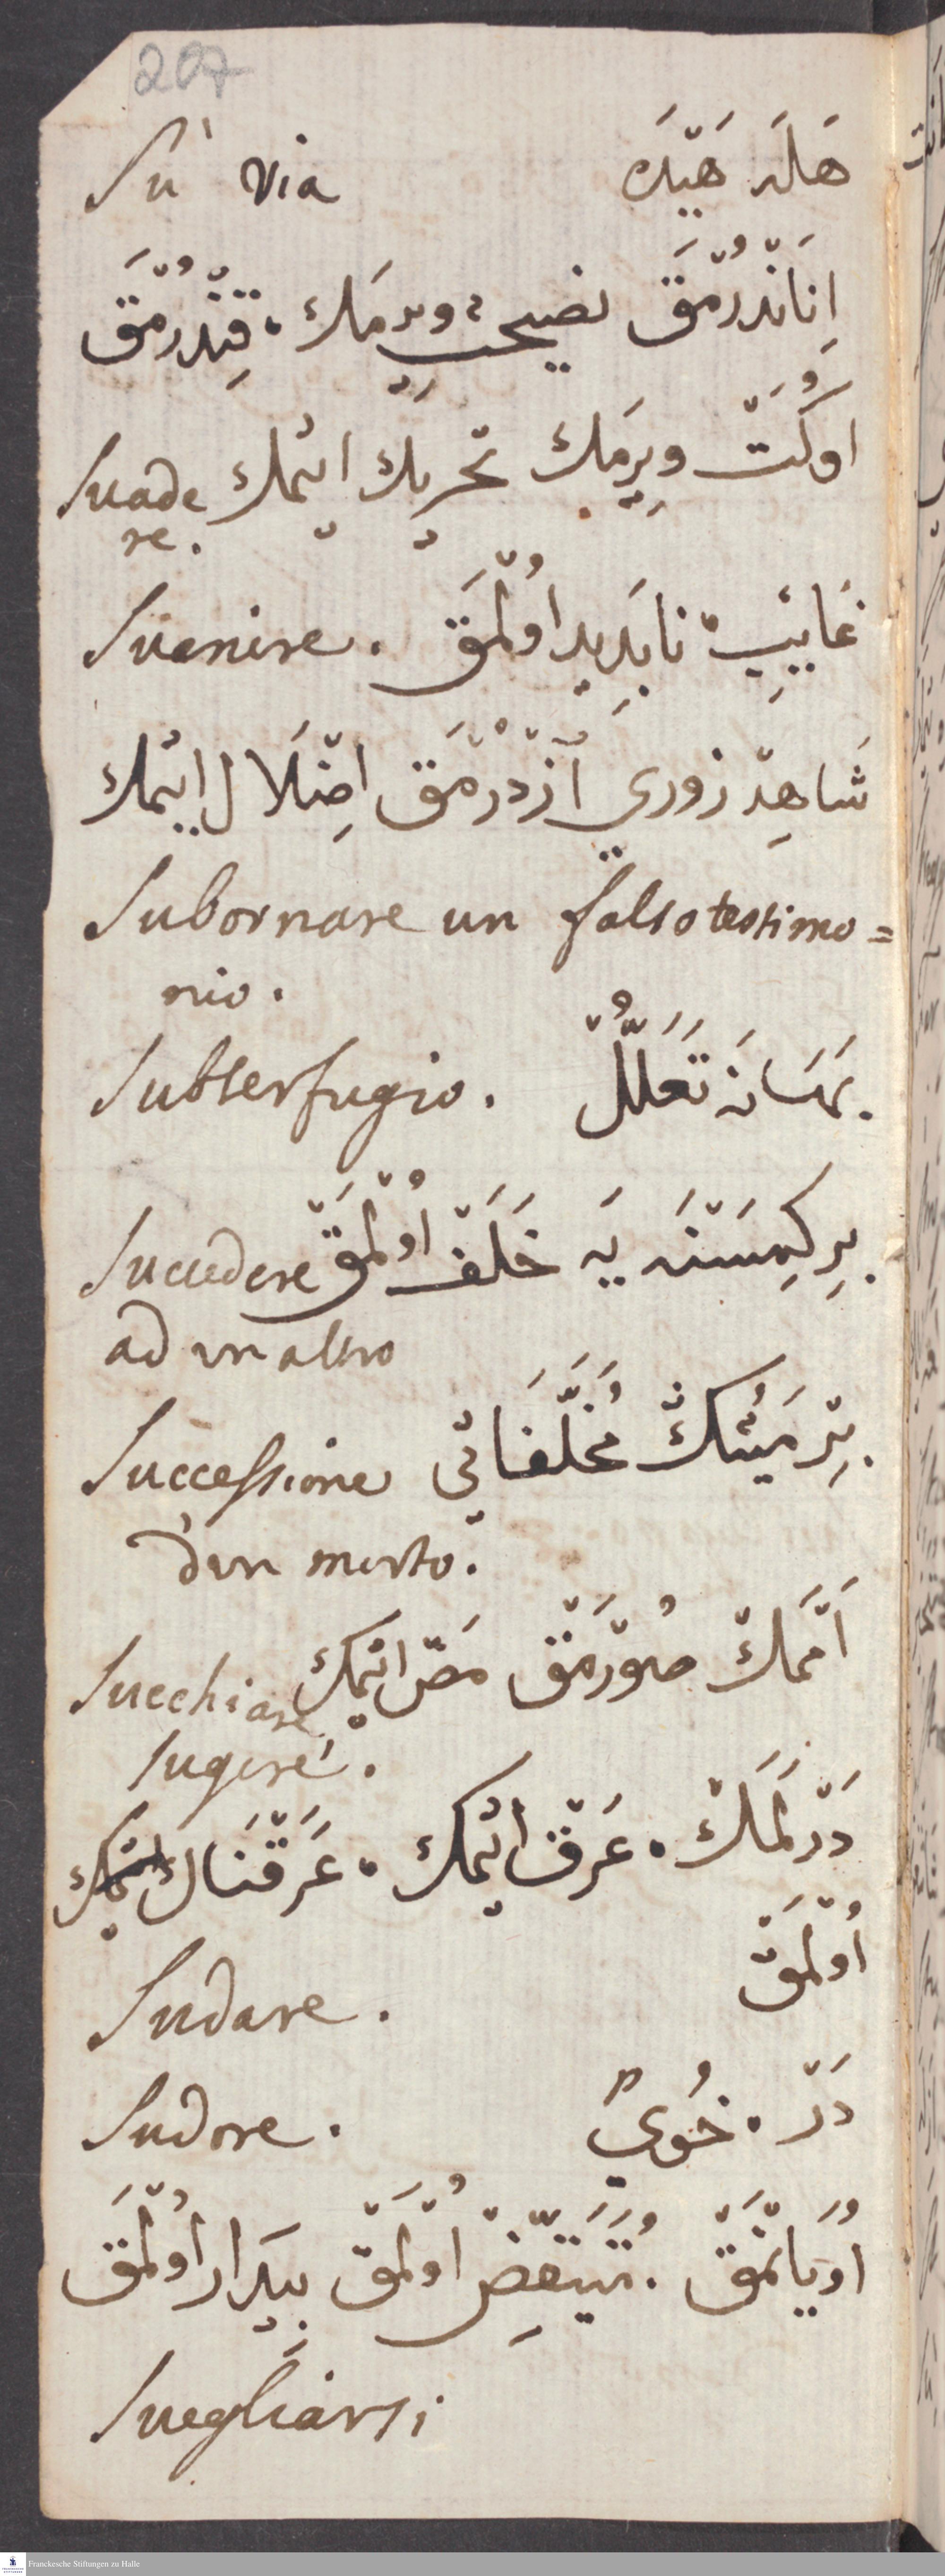 207
Su' via هَلَه هَيّدَه
اِنَانْدُرْمَق نصيحت ويرمَك، قِنْدُرْمَق
اوكُتْ ويرِمَك تحريك ايتمك Suade
re.
غَايِبْ نابَدِيد اوُلْمَق Suenire.
شَاهِدْ زوري ازدرْمَق اضلَال ايتمك
Subornare un falso testimo=
nio.
بَهَانَه تَعَلُّلْ Subterfugio.
بِر كِمسَنَه يَه خَلَفْ اوُلْمَقْ Succedere
ad un altro
بِرْ مَيِّتكْ مُخَلَّفَاتي Successione
d'un morto.
اَمَّمكْ صُوْرمَقْ مَصْ اتمك Succhiare
sugere'.
دَرْلَمَكْ . عَرَق ايتمك . عَرَقْنَاك
اوُلْمَقْ
Sudare.
دَرْ . خُوي Sudore.
اوُيَانْمَقْ . اوُلْمَقْ بيدَار اوُلْمَق
Suegliarsi
Franckesche Stiftungen zu Halle